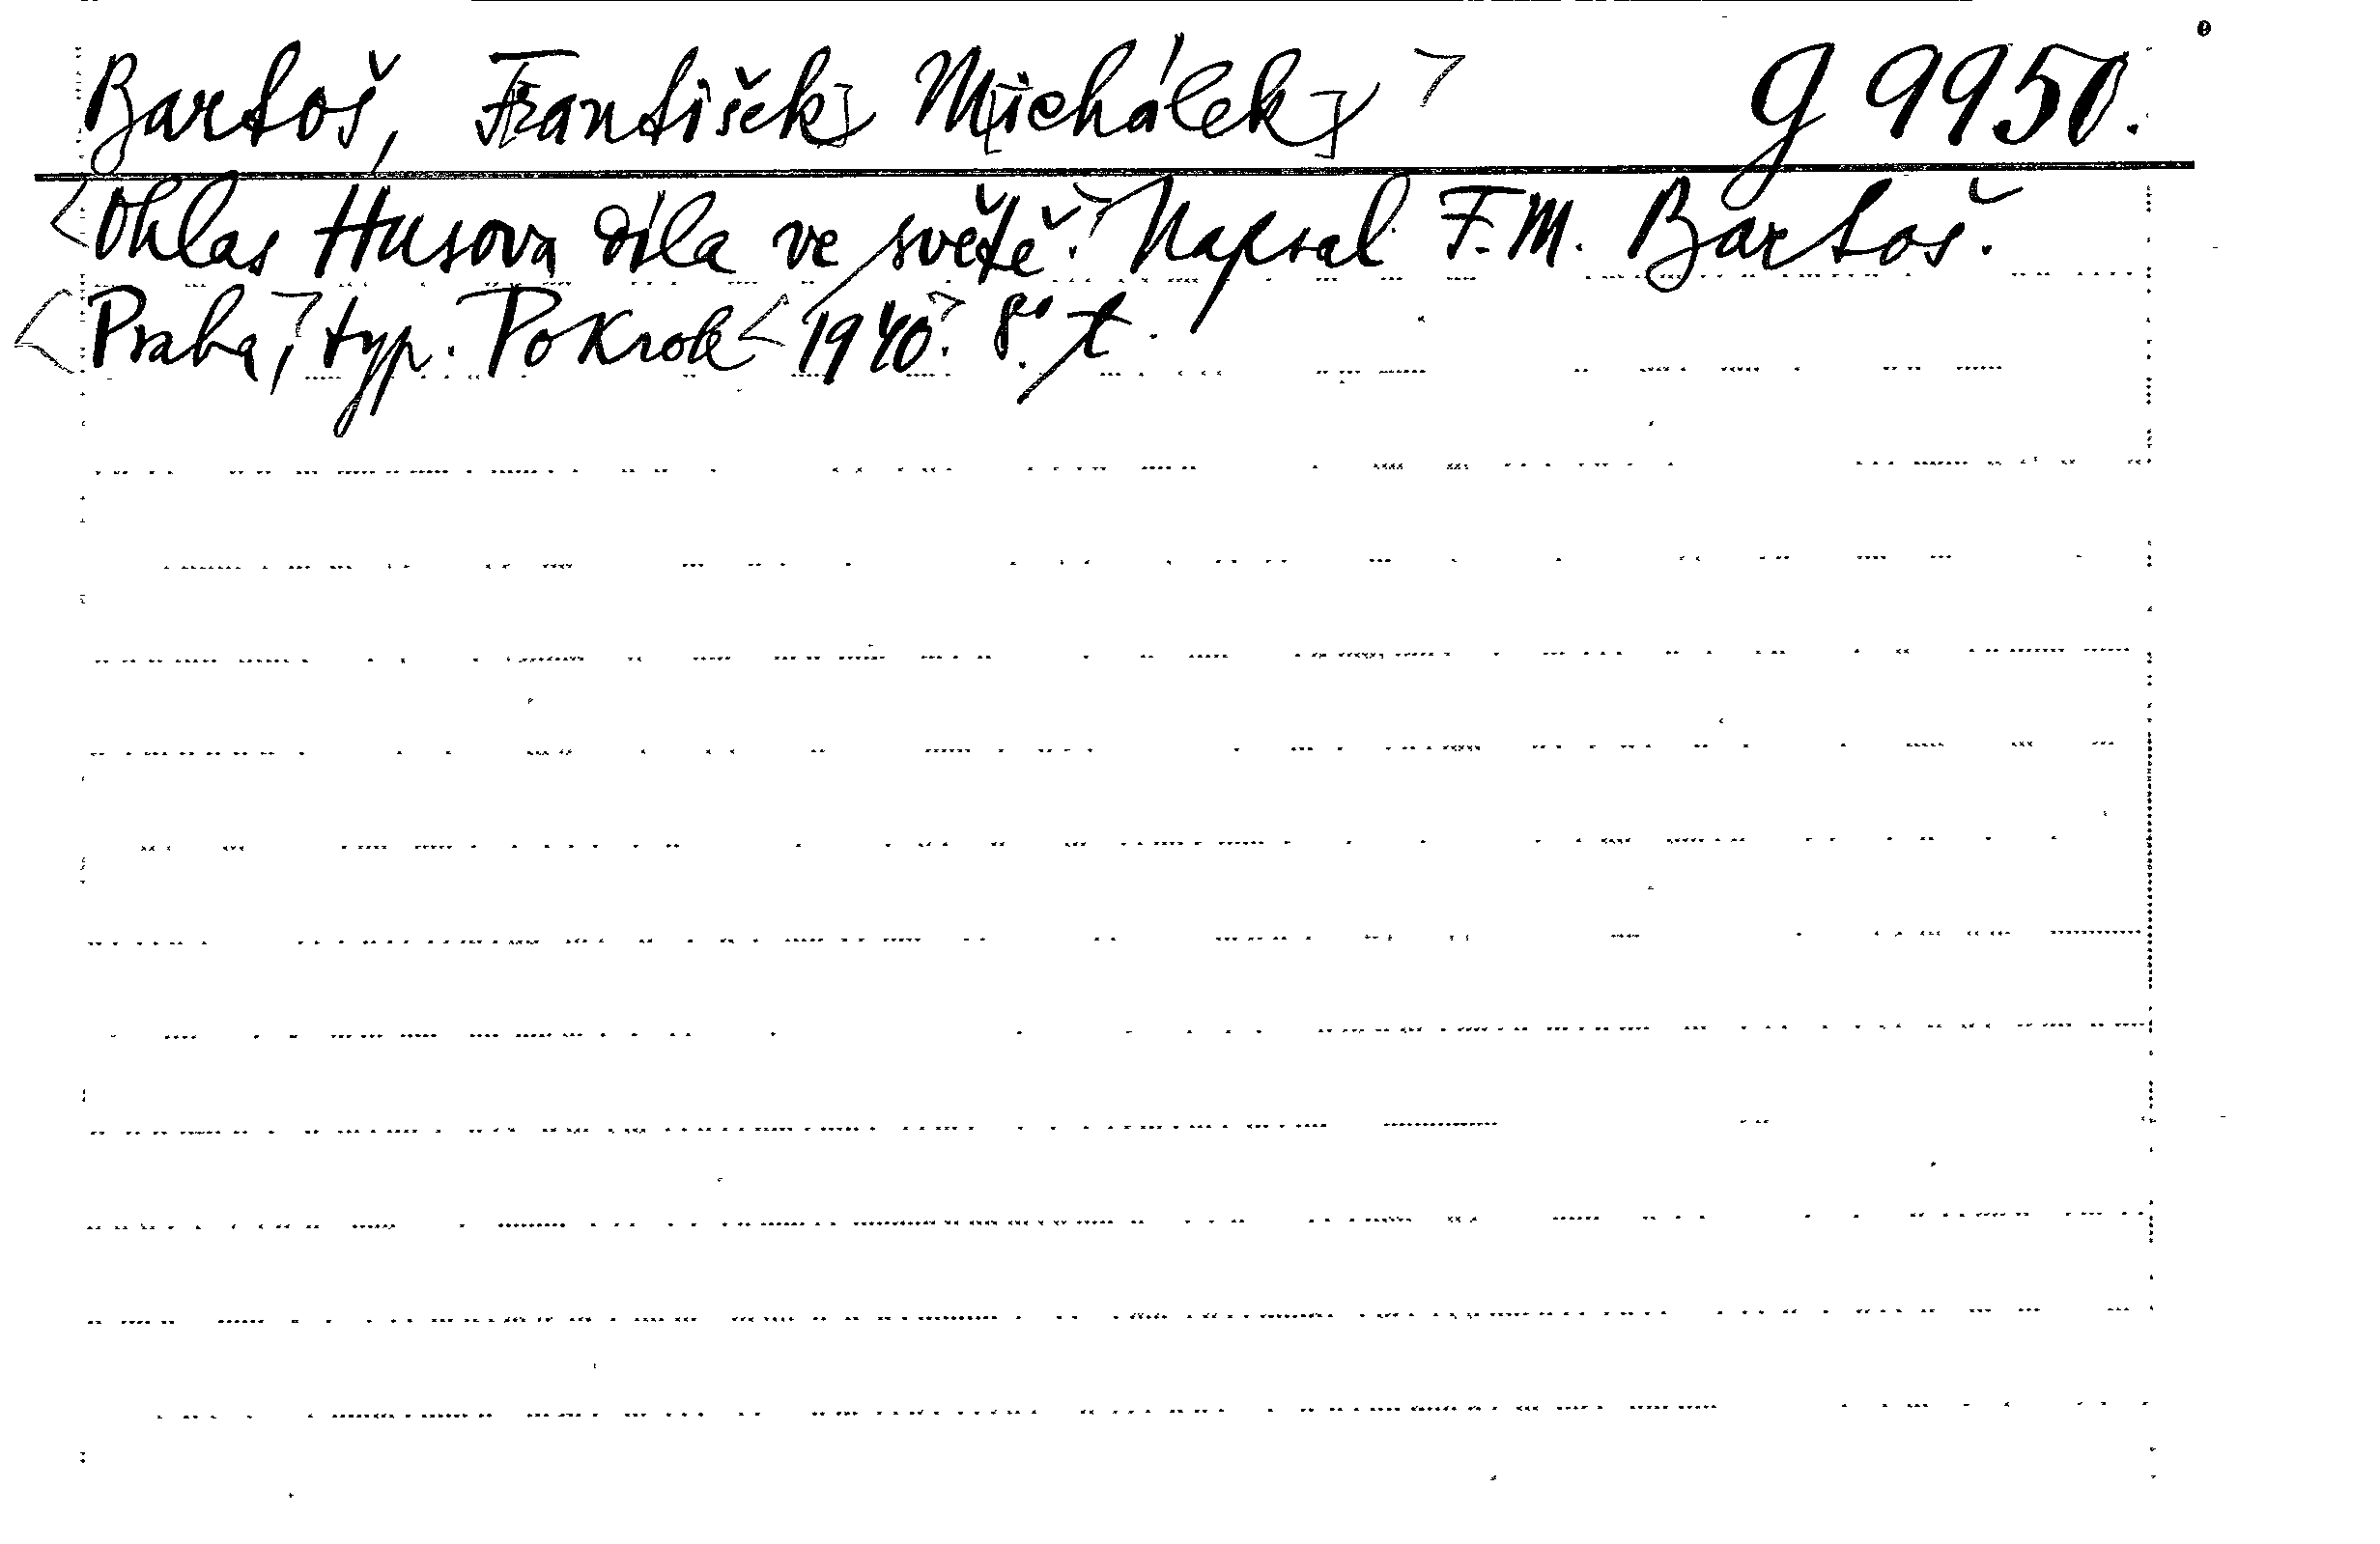 Bartoš, F[rantišek] M[ichálek] > g 9950.
<Ohlas Husova díla ve světě.> Napsal F. M. Bartoš.
<Praha,> typ. Pokrok <1940.> 8.° t.